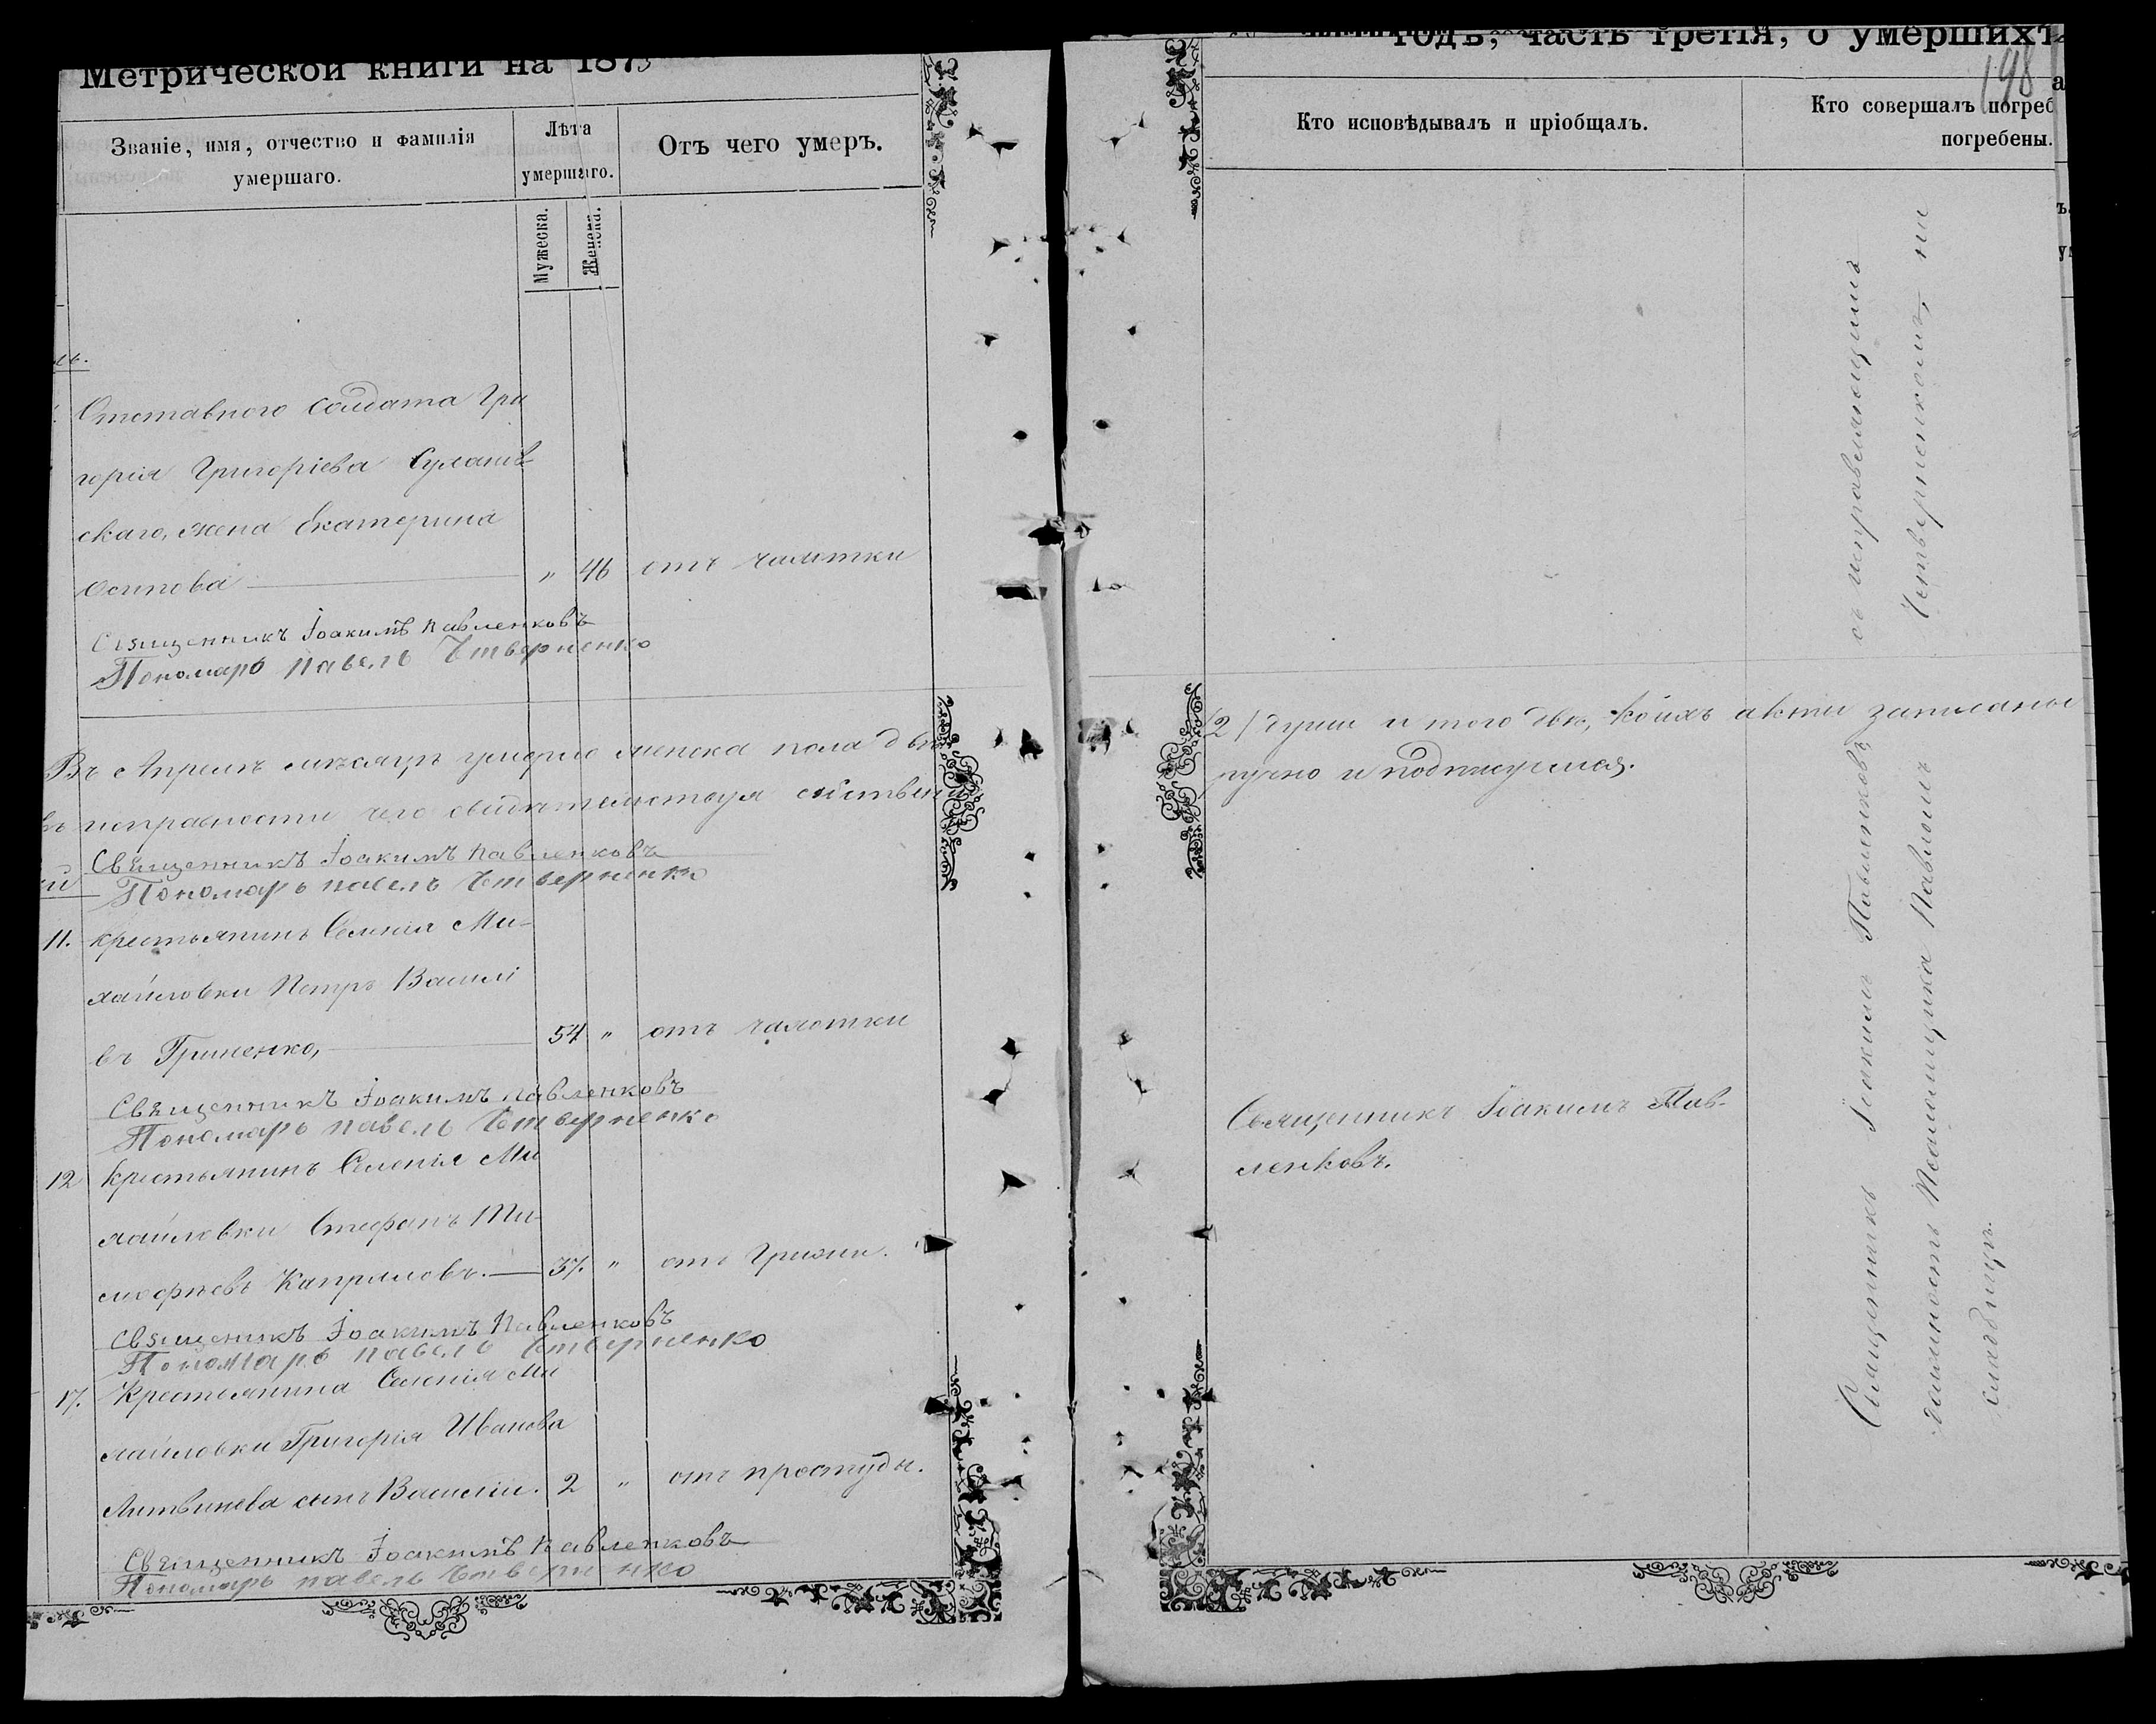 Метрической книги на 1873
Званіе, имя, отчество и фамилія
умершаго.
Лѣта
умершаго.
Мужеска.
Женска.
Отъ чего умеръ.
Отставного солдата Гри
горія Григоріева
скаго, жена Екатерина
Осипова " 46 отъ чахотки
Священникъ Іоакимъ Павленковъ
Пономарь Павелъ Четверненко
Въ Апрелѣ мѣсяцѣ умерло женска пола двѣ
исправности чего свидѣтельствуя
Священникъ Іоакимъ Павленковъ
Пономарь Павелъ Четверненко
11. Крестьянинъ Селенія Ми-
хайловки Петръ Василі
въ Гриненко, 54 " отъ чахотки
Священникъ Іоакимъ Павленковъ
Пономарь Павелъ Четверненко
12 Крестьянинъ Селенія Ми
хайловки Стефанъ Ти-
мофѣевъ 37. " отъ Грижи.
Священникъ Іоакимъ Павленковъ
Пономарь Павелъ Четверненко
17. Крестьянина Селенія Ми
хайловки Григорія Иванова
Литвинова сынъ Василій. 2 " отъ простуды.
Священникъ Іоакимъ Павленковъ
Пономарь Павелъ
годъ, часть третія, о умершихъ
198
Кто исповѣдывалъ и пріобщалъ.
Кто совершалъ погреб
погребены.
(2) души и того двѣ, коихъ акты записаны
ручно и подписуемся.
Священникъ Іоакимъ Пав-
ленковъ.
Священникъ Іоакимъ Павленковъ съ исправляющимъ
должность Псаломщика Павломъ Четверненкомъ, на
кладбищѣ.